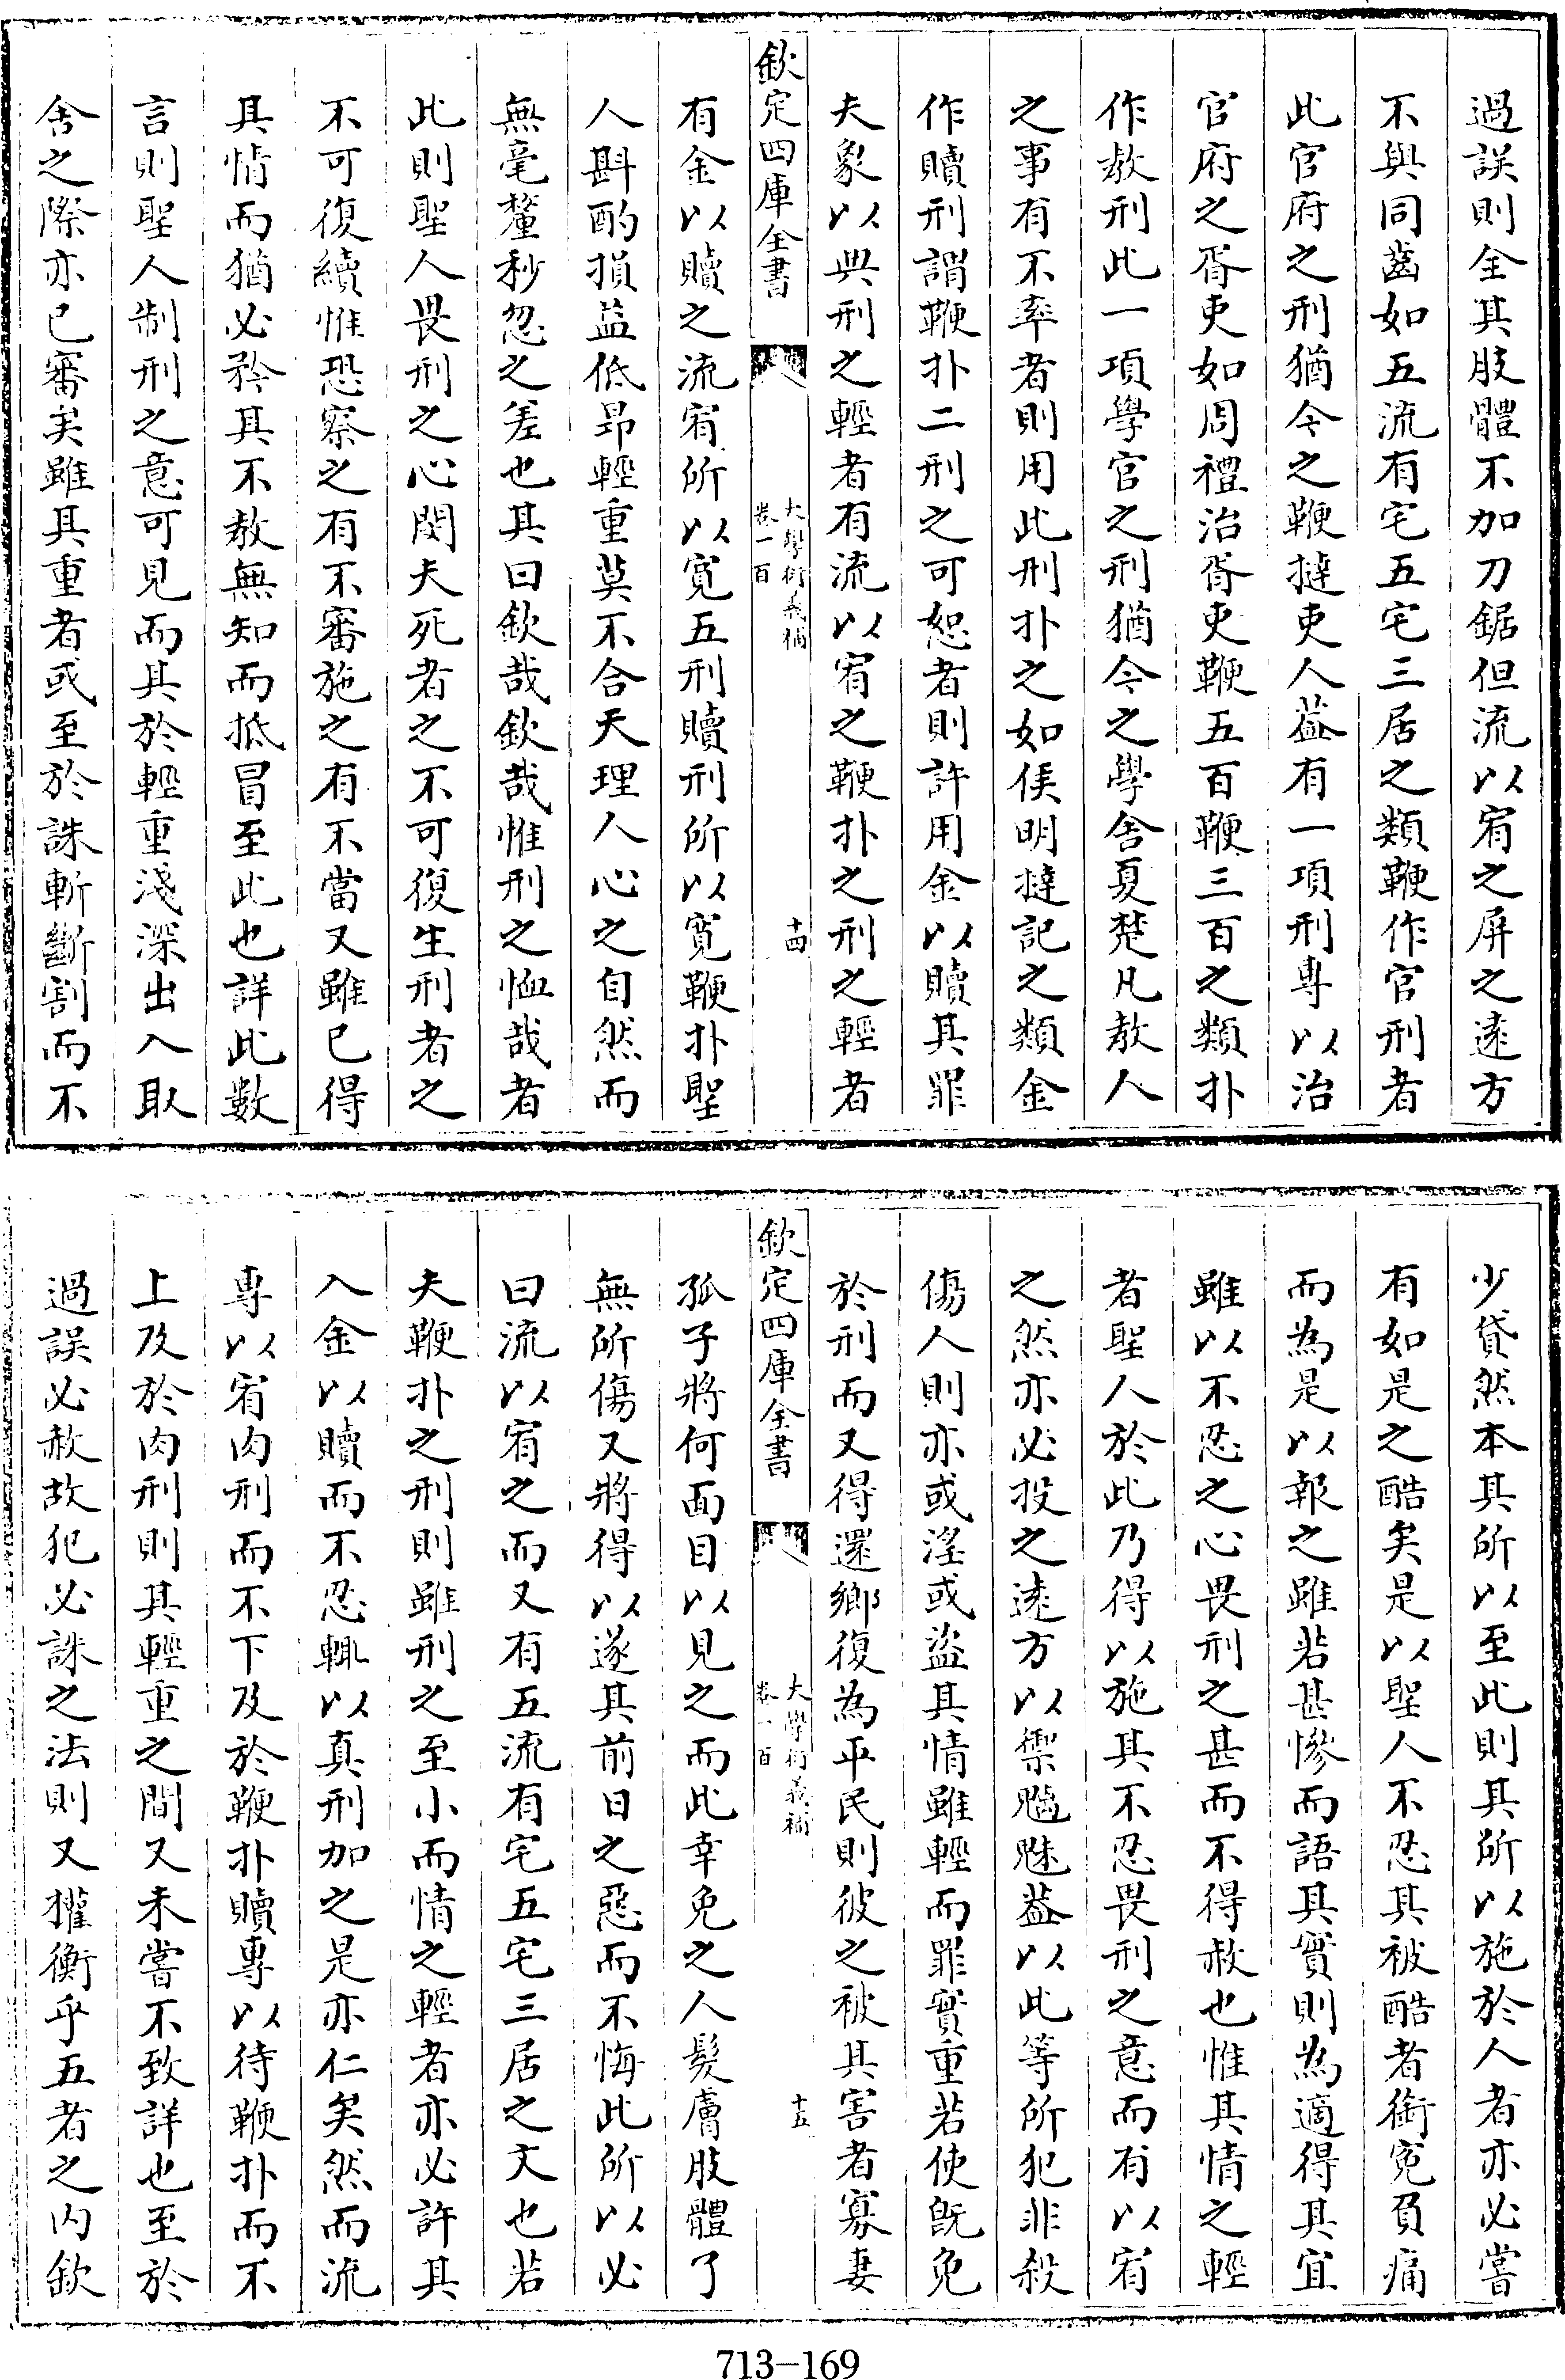 過誤則全其肢體不加刀鋸但流以宥之屏之逺方
不與同齒如五流有宅五宅三居之類鞭作官刑者
此官府之刑猶今之鞭撻吏人葢有一項刑專以治
官府之胥吏如周禮治胥吏鞭五百鞭三百之類扑
作教刑此一項學官之刑猶今之學舍夏楚凡教人
之事有不率者則用此刑扑之如侯明撻記之類金
作贖刑謂鞭扑二刑之可恕者則許用金以贖其罪
夫象以典刑之輕者有流以宥之鞭扑之刑之輕者
欽定四庫全書
大學衍義補
卷一百
十四
有金以贖之流宥所以寛五刑贖刑所以寛鞭扑聖
人斟酌損益低昂輕重莫不合天理人心之自然而
無毫釐秒忽之差也其曰欽哉欽哉惟刑之恤哉者
此則聖人畏刑之心閔夫死者之不可復生刑者之
不可復續惟恐察之有不審施之有不當又雖已得
其情而猶必矜其不教無知而抵冒至此也詳此數
言則聖人制刑之意可見而其於輕重淺深出入取
舍之際亦已審矣雖其重者或至於誅斬斷割而不
少貸然本其所以至此則其所以施於人者亦必嘗
有如是之酷矣是以聖人不忍其被酷者銜寃負痛
而為是以報之雖若甚慘而語其實則為適得其宜
雖以不忍之心畏刑之甚而不得赦也惟其情之輕
者聖人於此乃得以施其不忍畏刑之意而有以宥
之然亦必投之逺方以禦魑魅葢以此等所犯非殺
傷人則亦或滛或盜其情雖輕而罪實重若使旣免
於刑而又得還鄉復為平民則彼之被其害者寡妻
欽定四庫全書
大學衍義補
卷一百
十五
孤子將何面目以見之而此幸免之人髮膚肢體了
無所傷又將得以遂其前日之惡而不悔此所以必
曰流以宥之而又有五流有宅五宅三居之文也若
夫鞭扑之刑則雖刑之至小而情之輕者亦必許其
入金以贖而不忍輙以真刑加之是亦仁矣然而流
專以宥肉刑而不下及於鞭扑贖專以待鞭扑而不
上及於肉刑則其輕重之間又未嘗不致詳也至於
過誤必赦故犯必誅之法則又權衡乎五者之内欽
713-169